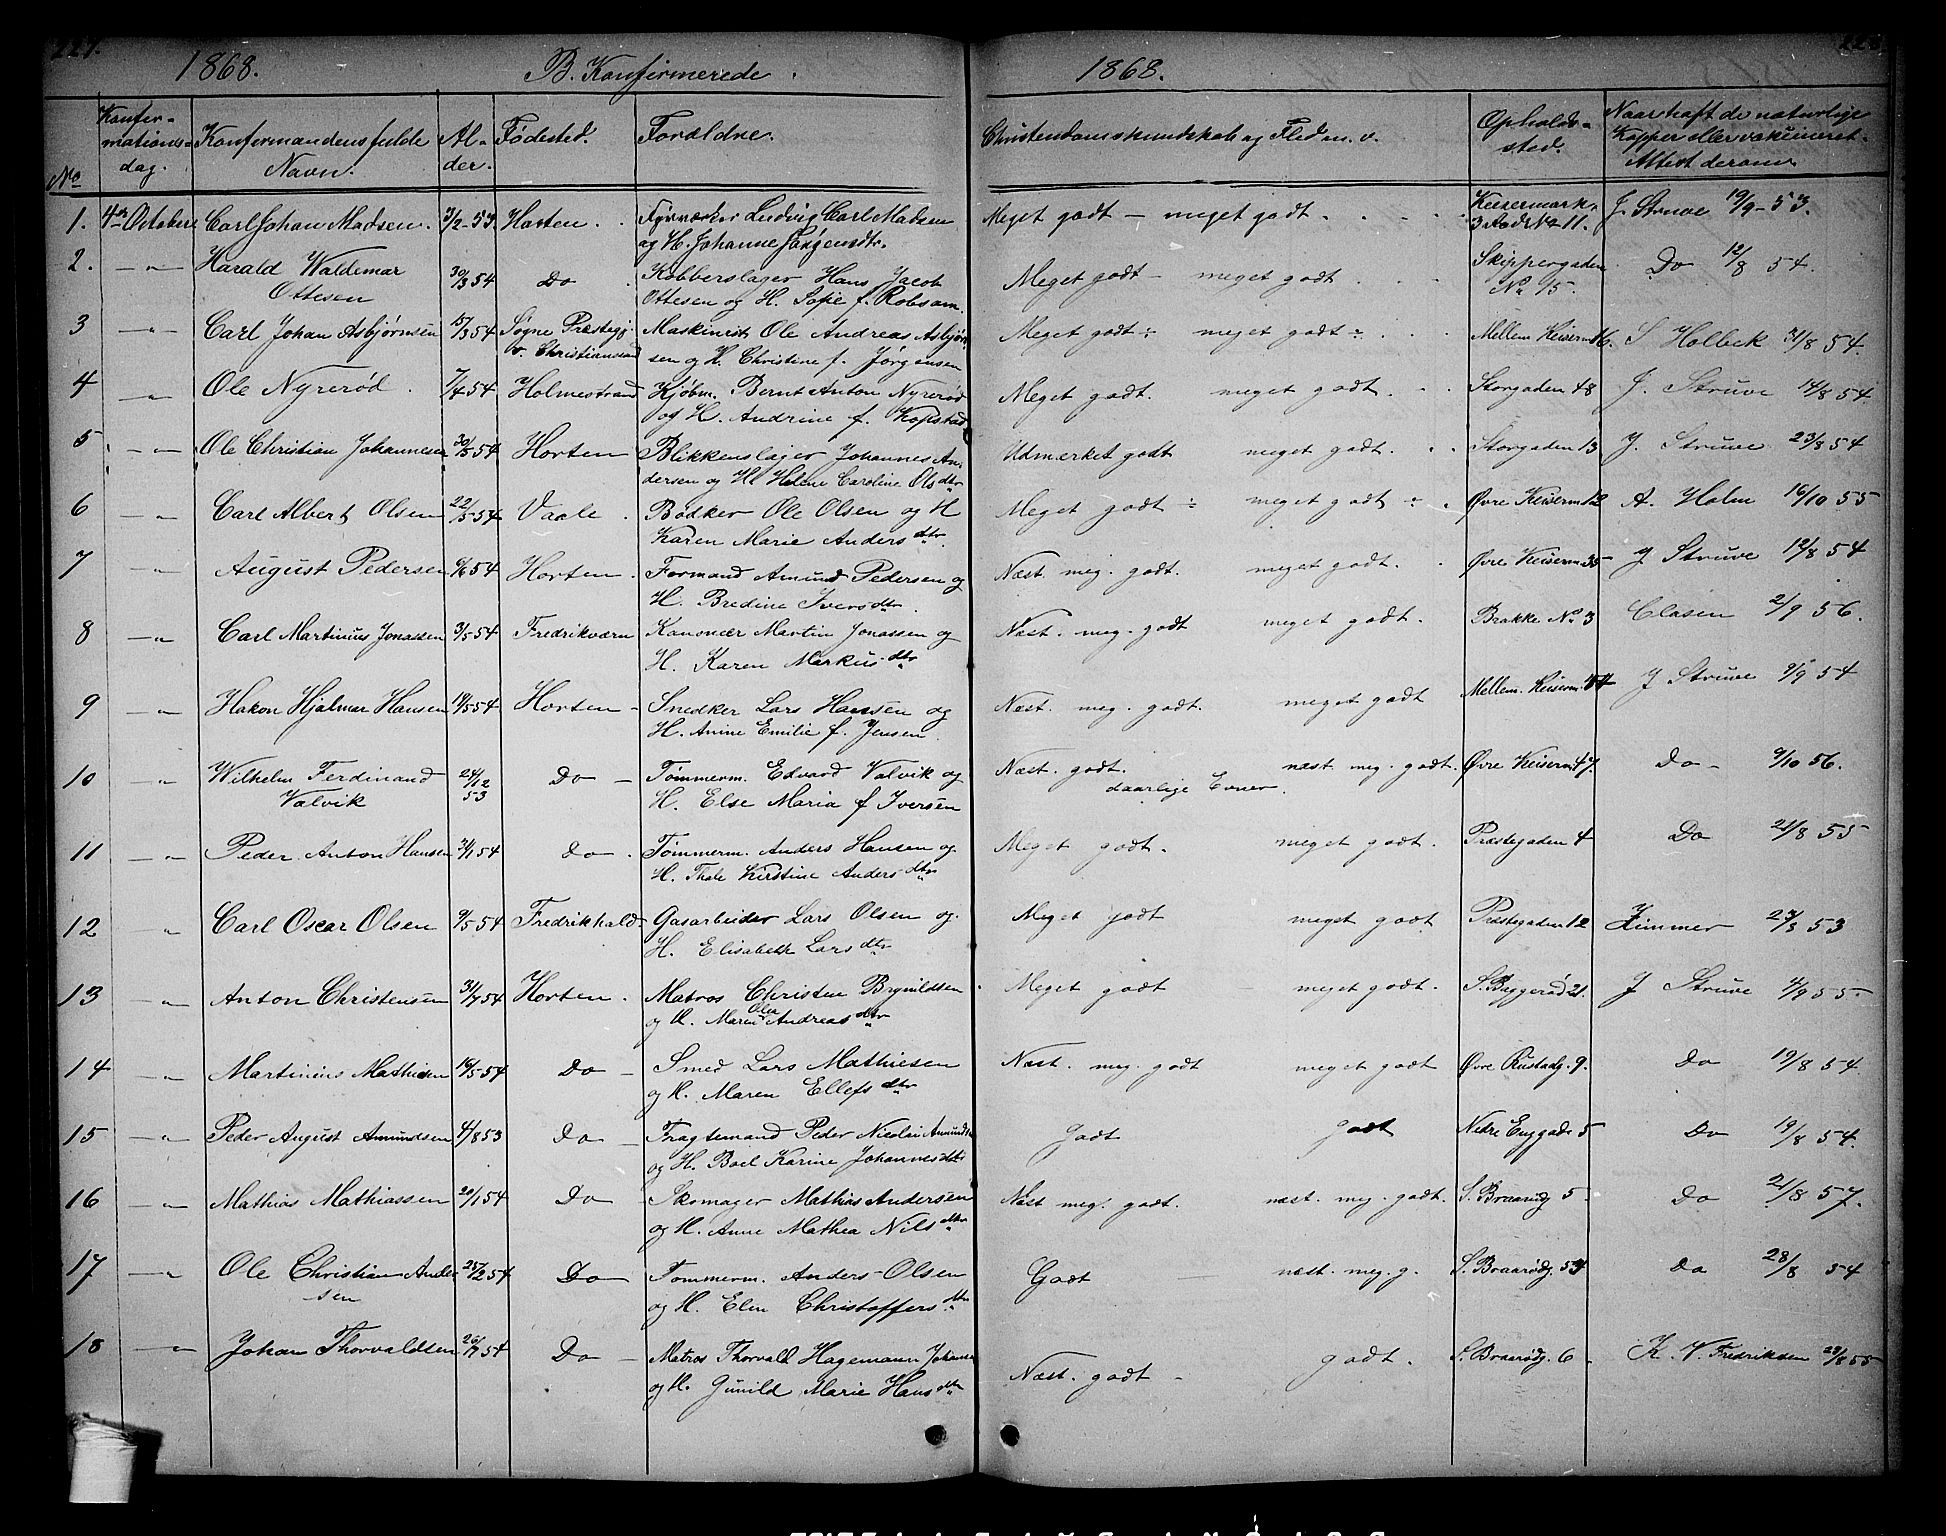 227.
1868. B. Konfirmerede. 1868.
No
Konfir-
mations-
dag.
Konfirmandens fulde
Navn.
Al-
der.
Fødested.
Forældre.
Christendomskundskab og Flid m. v.
Opholds-
sted.
Naar haft de naturlige
Kopper eller vakcineret.
Attest derom
1. 4de October Carl Johan Madsen. 3/2-53 Horten. Fyrværker Ludvig Carl Madsen Meget godt - meget godt. Keisermark. J. Struve 19/9-53.
og H. Johanne Jørgensdtr. 3 Rode No 11.
2. -"- Harald Waldemar 30/3 54 Do Kobberslager Hans Jacob Meget godt - meget godt Skippergaden Do 12/8 54.
Ottesen Ottesen og H. Sofie f. Robsam. No 15.
3 -"- Carl Johan Asbjørnsen 15/3 54 Sogne Præstegj. Maskinist Ole Andreas Asbjørn Meget godt ÷ meget godt ÷ Mellem Keiserm 16. S Holbek 31/8 54.
v. Christianssand sen og H. Christine f. Jörgensen
4 -"- Ole Nyrerød. 7/4 54 Holmestrand Kjøbm. Bernt Anton Nyrerød Meget godt. meget godt. Storgaden 48 J. Struve 14/8 54.
og H. Andrine f. Kopstad
5 -"- Ole Christian Johannesen 30/5 54 Horten Blikkenslager Johannes An- Udmærket godt meget godt. Storgaden 13 J. Struve 23/8 54
dersen og H. Helene Caroline Olsdtr
6 -"- Carl Albert Olsen 22/5 54 Vaale. Bødker Ole Olsen og H Meget godt ÷ meget godt ÷ Øvre Keiserm 12 A. Holm 16/10 55
Karen Marie Andersdtr.
7 -"- August Pedersen 6/6 54 Horten. Formand Amund Pedersen og Næst. meg. godt. meget godt. Øvre Keiserm 35 J Struve 12/8 54
H. Bredine Iversdtr.
8 -"- Carl Martinius Jonassen 3/5 54 Fredrikværn Kanonær Martin Jonassen og Næst. meg. godt meget godt. Brakke No 3 Clasen 2/9 56.
H. Karen Markusdtr
9 -"- Hakon Hjalmar Hansen 19/5 54 Horten - Snedker Lars Hansen og Næst. meg. godt. meget godt Mellem. Keiserm. J Struve 9/9 54
H. Anine Emilie f. Jensen
10 -"- Wilhelm Ferdinand 24/12 53 Do - Tømmerm. Edvard Valvik og Næst. godt. næst. meg. godt. Øvre Keiserm 47 Do - 9/10 56.
Valvik H. Else Maria f Iversen daarlige Evner.
11 -"- Peder Anton Hansen 31/1 54 Do. Tømmerm. Anders Hansen og Meget godt. meget godt. Præstegaden 4 Do 21/8 55
H. Thale Kirstine Andersdtr
12 -"- Carl Oscar Olsen 9/5 54 Fredrikhald Gasarbeider Lars Olsen og Meget godt meget godt Præstegaden 12 Zimmer 23/3 53
H. Elisabeth Larsdtr
13 -"- Anton Christensen 31/7 54 Horten. Matros Christen Brynildsen Meget godt meget godt. S. Baggerød 21. J Struve 4/9 55.
og H. Maren Olea Andreasdtr
14 -"- Martinius Mathiesen 16/5 54 Do - Smed Lars Mathiesen Næst. meg. godt meget godt Øvre Rustadg. 9. Do 19/8 54.
og H. Maren Ellefsdtr
15 -"- Peder August Amundsen 4/8 53 Do - Fragtemand Peder Nicolai Amunds Godt godt Nedre Enggade 5 Do 19/8 54.
og H. Boel Karine Johannesdtr
16 -"- Mathias Mathiassen 20/1 54 Do - Skomager Mathias Andersen Næst meg. godt. næst. meg. godt. S. Braarødg 5. Do 21/8 57.
og H. Anne Mathea Nilsdtr
17 -"- Ole Christian Ander 25/2 54 Do Tømmerm. Anders Olsen Godt næst. meg. g. S. Braarødg. 54 Do 28/8 54
sen og H. Elen Christoffersdtr
18 -"- Johan Thorvaldsen 26/7 54 Do - Matros Thorvald Hagemann Johansen Næst. godt - godt. S. Braarødg. 6 - K. V. Fredriksen 29/8 55
og H. Gunild Marie Hansdtr